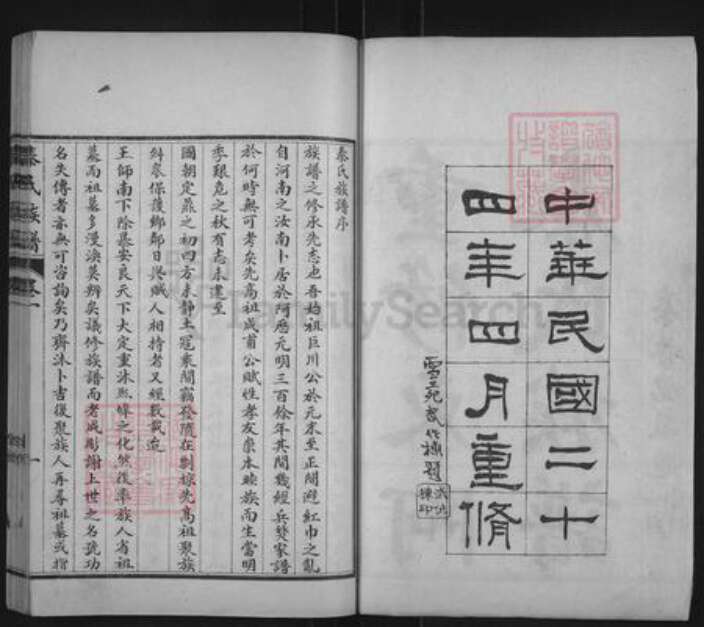 中華民國二十
四年四月重修
雪苑武作棟題
秦氏族譜序
族譜之修承先志也吾始祖巨川公於元末至正間避紅巾之亂
自河南之汝南卜居於阜歷元明三百餘年其間幾經兵燹家譜
於何時無可考矣先高祖成首公賦性孝友崇本睦族而生當明
季艱危之秋有志未遑至
國朝定鼎之初四方未靜土冦乘間竊發隨在剽掠先高祖聚族
糾衆保護鄉鄰日與賊人相持者又經數載迨
王師南下除暴安良天下大定重沐熙皡之化然後率族人省祖
墓而祖墓多漫渙莫辨矣議修族譜而老成彫謝上世之名號功
名失傳者亦無可咨詢矣乃齊沐卜吉復聚族人再尋祖墓或指
秦氏族譜
卷一
一
FamilySearch